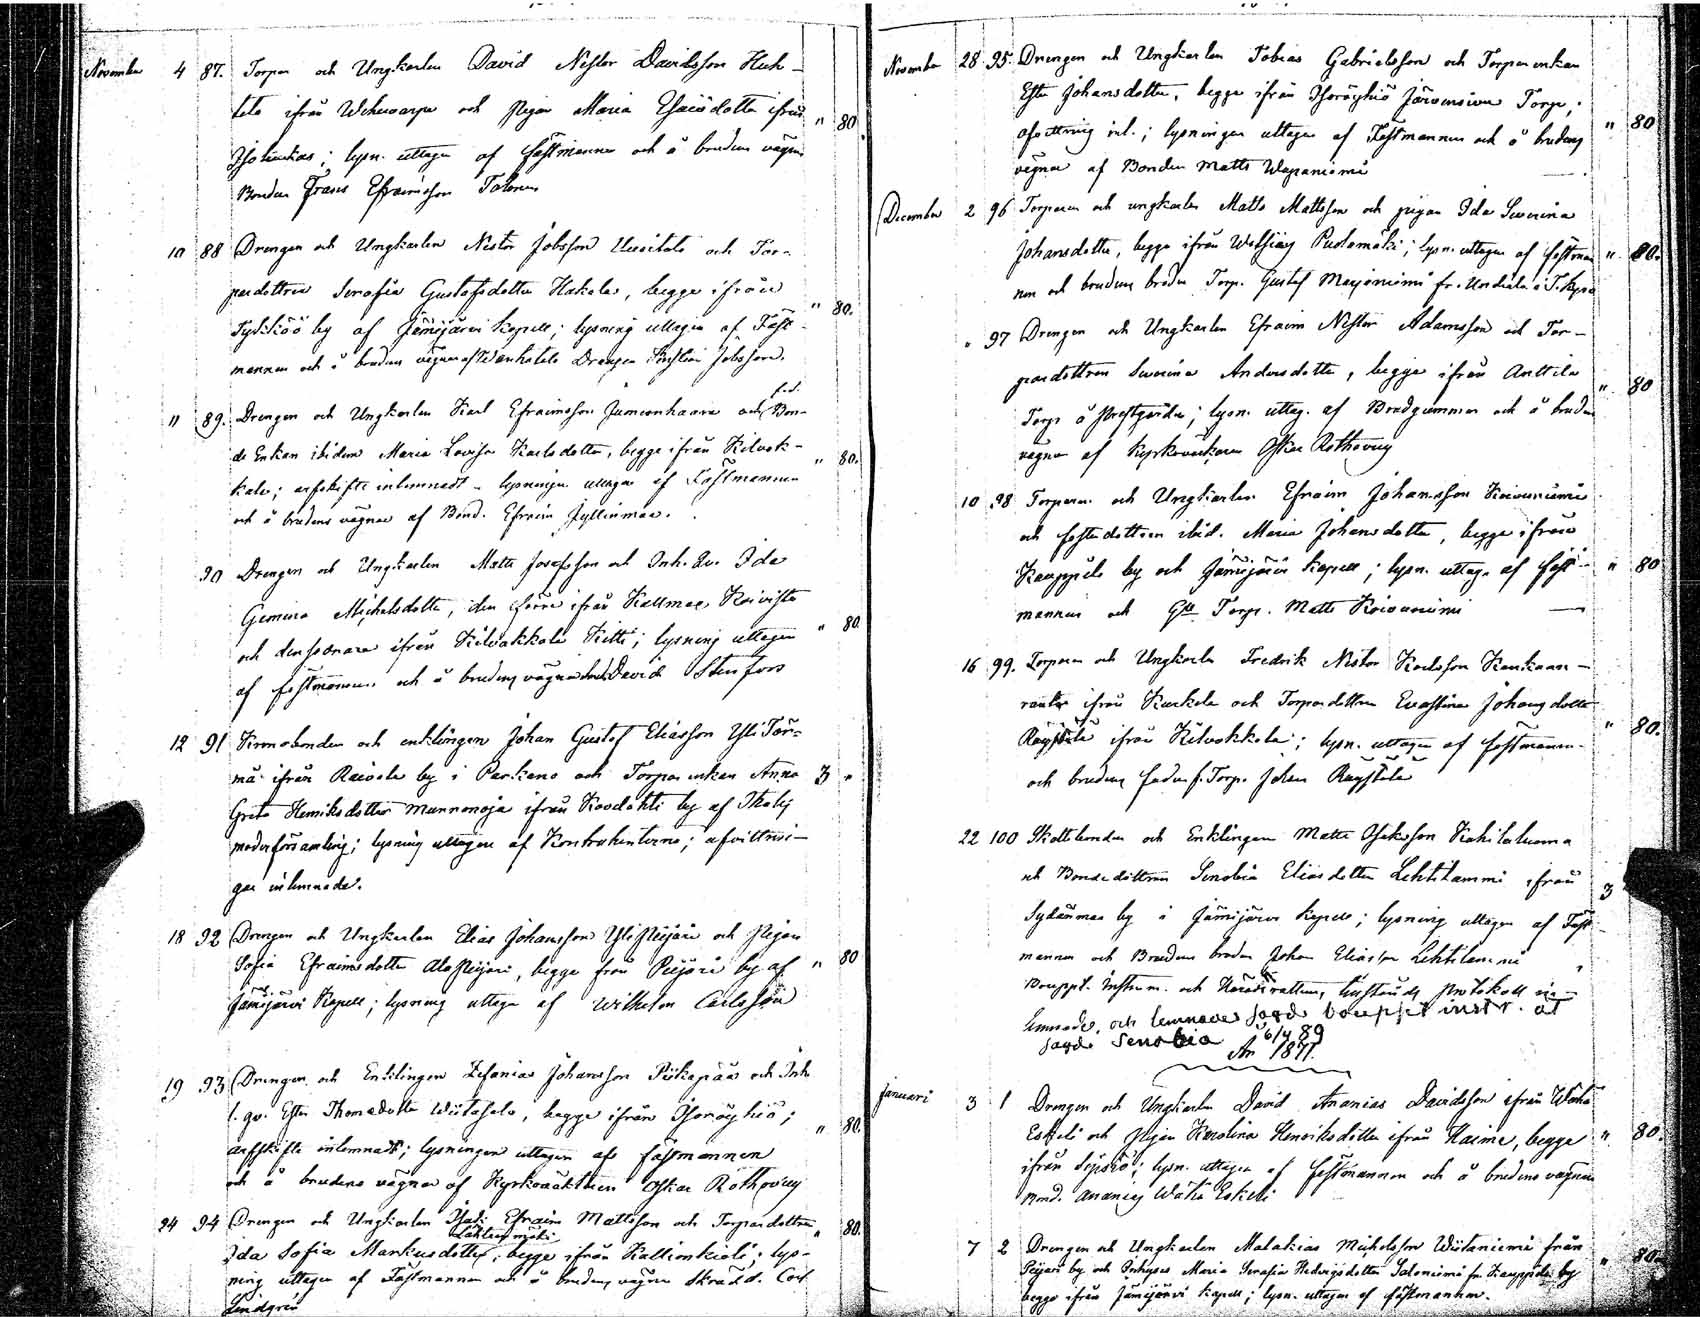 November 4 87. Torpar och Ungkarlen David Nestor Davidsson Huh-
tala ifrån och pigan Maria Esaiædotter ifrån
; lysn. uttagen af fästmannen och å brudens vägnar " 80
Bonden Frans Efraimsson
10 88 Drengen och Ungkarlen Nestor Jobsson Uusitalo och Tor-
pardottren Serafia Gustafsdotter Hakala, begge ifrån
by af Jämijärvi Kapell; lysning uttagen af Fäst- " 80.
mannen och å brudens vägnar Drengen Jobsson.
" 89. Drengen och Ungkarlen Karl Efraimsson och f.d. Bon-
de Enkan ibidem Maria Lovisa Karlsdotter, begge ifrån Kilvak-
kala; arfskifte inlemnadt - lysningen uttagen af Fästmannen " 80.
och å brudens vägnar af Bond. Efraim Jyllinmaa.
90 Drengen och Ungkarlen Matts Josefsson och Inh. Qv. Ida
Gemina Michelsdotter, den förre ifrån Koivisto
och den sednare ifrån Kilvakkala Kitti; lysning uttagen " 80
af fästmannen och å brudens vägnar David Stenfors
12 91 Kronobonden och enklingen Johan Gustaf Eliasson Yli Tör-
mä ifrån by i Parkano och Torpar enkan Anna 3 "
Greta Henriksdotter Mannonoja ifrån by af Ikalis
moderförsamling; lysning uttagen af Kontrahenterne; afvittrin-
gar inlemnade.
18 92 Drengen och Ungkarlen Elias Johansson Yli Peijari och Pigan
Sofia Efraimsdotter Ala Peijari, begge från Peijari by af " 80
Jämijärvi Kapell; lysning uttagen af Wilhelm Carlsson
19 93 Drengen och Enklingen Zefanias Johansson och Inh.
l. qv. Ester Thomasdotter Wiitasalo, begge ifrån Isoröyhiö;
arfskifte inlemnadt; lysningen uttagen af fästmannen " 80.
och å brudens vägnar af Kyrkoväktaren Oskar Rothovius
24 94 Drengen och Ungkarlen Isak Efraim Mattsson och Torpardottren " 80.
Ida Sofia Markusdotter, begge ifrån; lys-
ning uttagen af Fästmannen och å brudens vägnar Skrädd. Carl
Lindgrén
November 28 95. Drengen och Ungkarlen Tobias Gabrielsson och Torpar enkan
Ester Johansdotter, begge ifrån Isoröyhiö Järvensivu Torp;
afvittring inl.; lysningen uttagen af Fästmannen och å brudens " 80
vägnar af Bonden Matts Wapaniemi
December 2 96 Torparen och ungkarlen Matts Mattsson och pigan Ida Severina
Johansdotter, begge ifrån; lysn. uttagen af fästman- " 80.
nen och brudens broder Torp. Gustaf Marjoniemi fr.
" 97 Drengen och Ungkarlen Efraim Nestor Adamsson och Tor-
pardottren Severina Andersdotter, begge ifrån Anttila " 80
Torp å Prestgården; lysn. uttag. af Brudgummen och å brudens
vägnar af Kyrkoväktaren Oskar Rothovius
10 98 Torparen och Ungkarlen Efraim Johansson Koivuniemi
och fosterdottren ibid. Maria Johansdotter, begge ifrån
Kauppila by och Jämijärvi Kapell; lysn. uttagen af fäst- " 80
mannen och Torp. Matts Koivuniemi
16 99. Torparen och Ungkarlen Fredrik Nestor Karlsson Kankaan-
ranta ifrån och Torpardottren Evastina Johansdotter
Röyskilä ifrån Kilvakkala; lysn. uttagen af fästmannen " 80.
och brudens fader f. Torp. Johan Röyskilä
22 100 Skattbonden och Enklingen Matts Kahilaluoma
och Bondedottren Senobia Eliasdotter Lehtilammi ifrån 3
Sydänmaa by i Jämijärvi Kapell; lysning uttagen af Fäst-
mannen och Brudens broder Johan Eliasson Lehtilammi "
Bouppt. Instrum. och Häradsrättens protokoll in-
lemnade, och lemnades bouppt. instr. åt
Senobia 6/4 89
År 1871.
Januari 3 1 Drengen och Ungkarlen David Ananias Davidsson ifrån Wähä
Eskeli och Pigan Karolina Henriksdotter ifrån, begge " 80.
ifrån Sipsiö; lysn. uttagen af fästmannen och å brudens vägnar
Bond. Ananias Wähä Eskeli
7 2 Drengen och Ungkarlen Malakias Michelsson Wiitaniemi från
Peijari by och Inhyses Maria Serafia Hedvigsdotter Saloniemi fr. Kauppila by " 80.
begge ifrån Jämijärvi Kapell; lysn. uttagen af fästmannen.